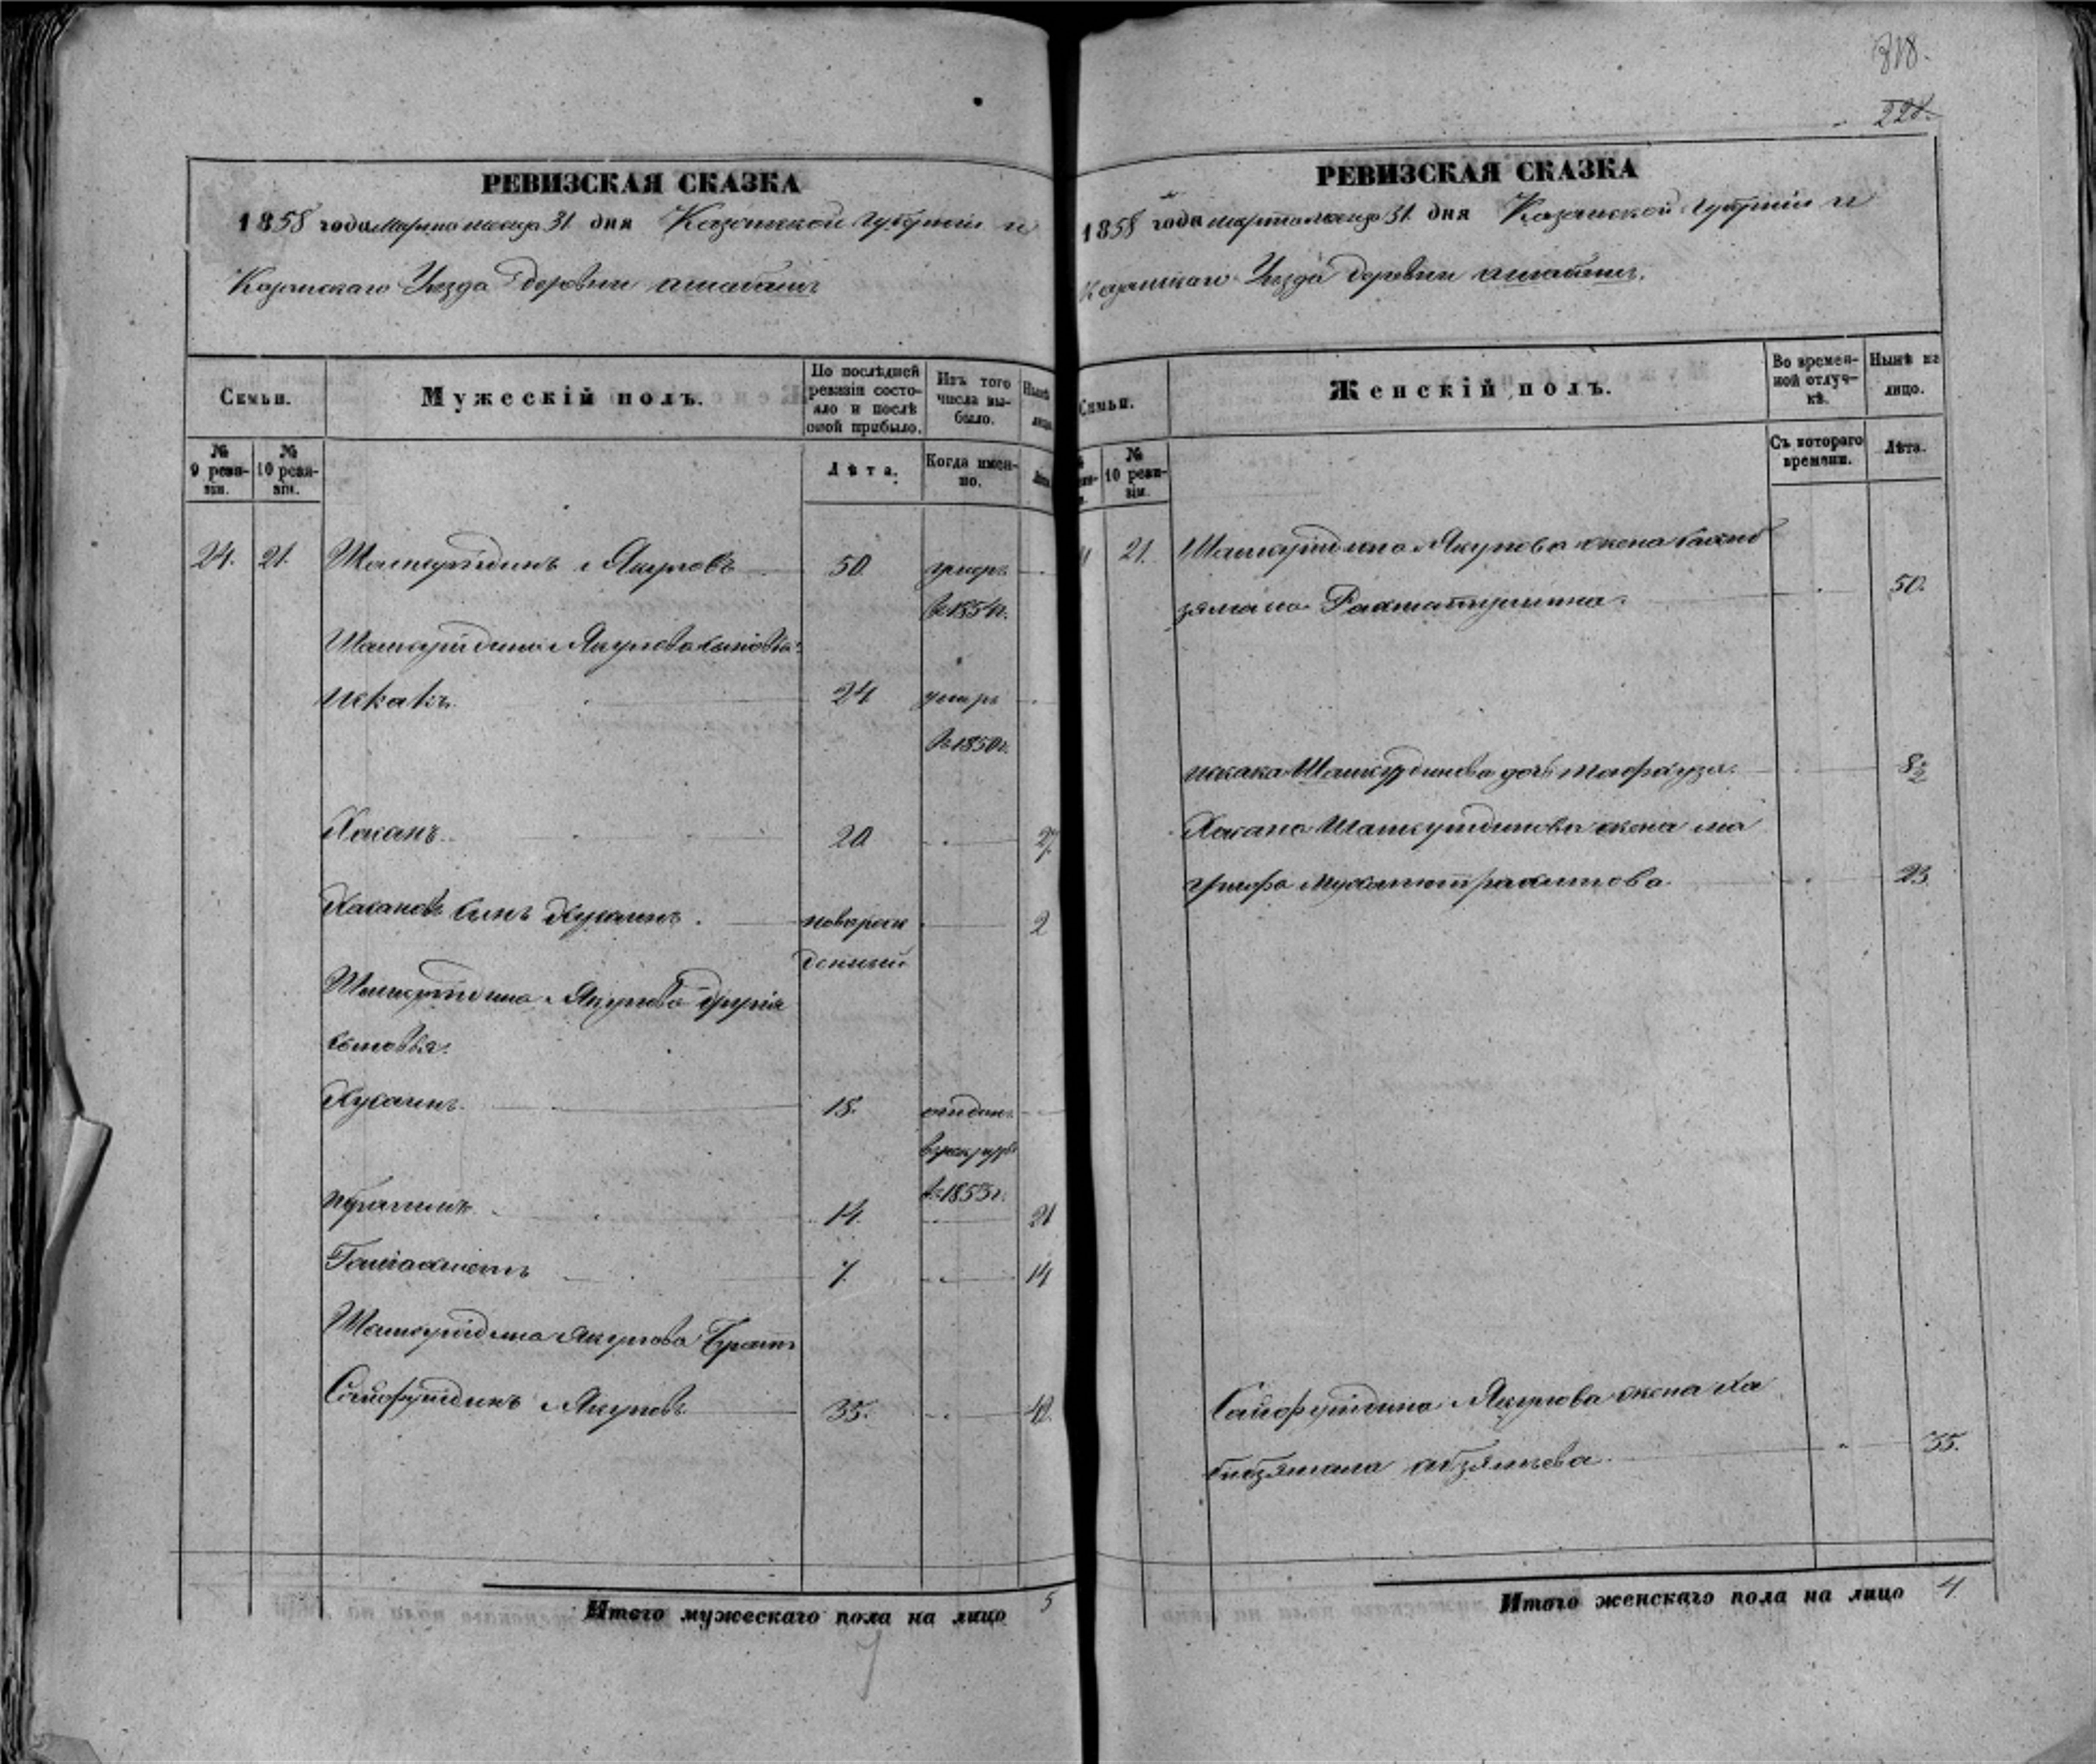 318.
228.
РЕВИЗСКАЯ СКАЗКА
1858 года марта месяца 31 дня Казанской губернiи и
Казанскаго Уезда деревни
Семьи.
Мужескiй полъ.
По послѣдней ревизiи состояло и послѣ оной прибыло.
Изъ того числа выбыло.
Нынѣ на лицо.
№ 9 ревизiи.
№ 10 ревизiи.
Лѣта.
Когда именно.
Лѣта.
24. 21. Шамсутдинъ Якуповъ 50. умеръ
въ 1854г.
Шамсутдина Якупова сыновья:
Искакъ 24 умеръ
въ 1850г.
Хасанъ 20 27
Хасановъ сынъ Хусаинъ. новорож 2
денный
Шамсутдина Якупова другiя
сыновья.
Хусаинъ 18. отданъ
в рекруты
въ 1853г.
Ибрагимъ 14. 21
7. 14
Шамсутдина Якупова братъ
Сайфутдинъ Якуповъ 35. 42.
Итого мужескаго пола на лицо 5
7
РЕВИЗСКАЯ СКАЗКА
1858 года марта месяца 31 дня Казанской губернiи и
Казанскаго Уезда деревни
Семьи.
Женскiй полъ.
Во временной отлучкѣ.
Нынѣ на лицо.
№ 10 ревизiи.
Съ котораго времени.
Лѣта.
21. Шамсутдина Якупова жена
50.
Искака Шамсутдинова дочь Мафауза. 8½
Хасана Шамсутдинова жена Ма
23
Сайфутдина Якупова жена Ха
бибзямала 35.
Итого женскаго пола на лицо 4